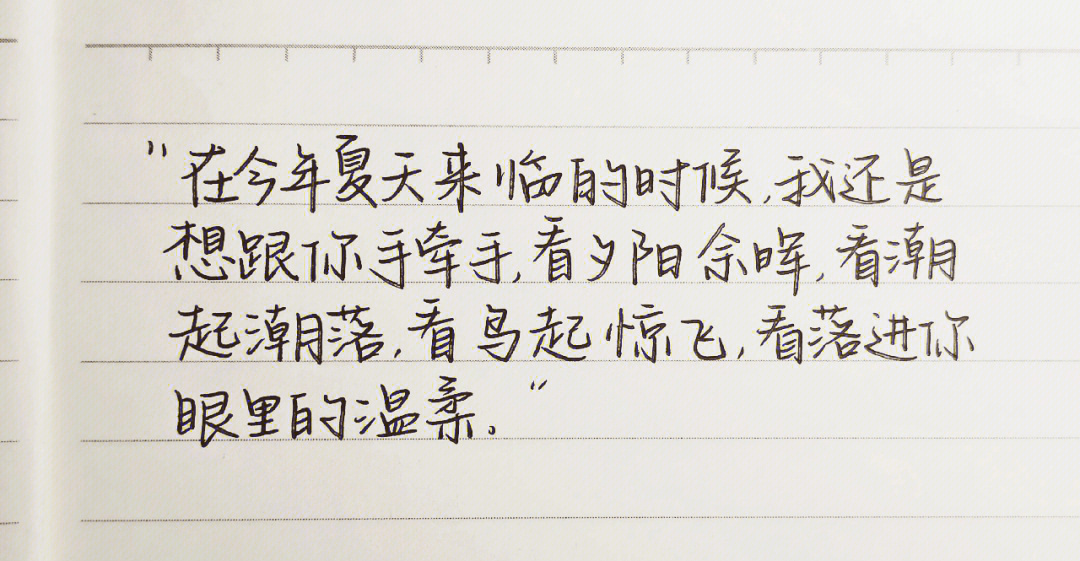 "在今年夏天来临的时候,我还是
想跟你手牵手,看夕阳余晖,看潮
起潮落,看鸟起惊飞,看落进你
眼里的温柔."